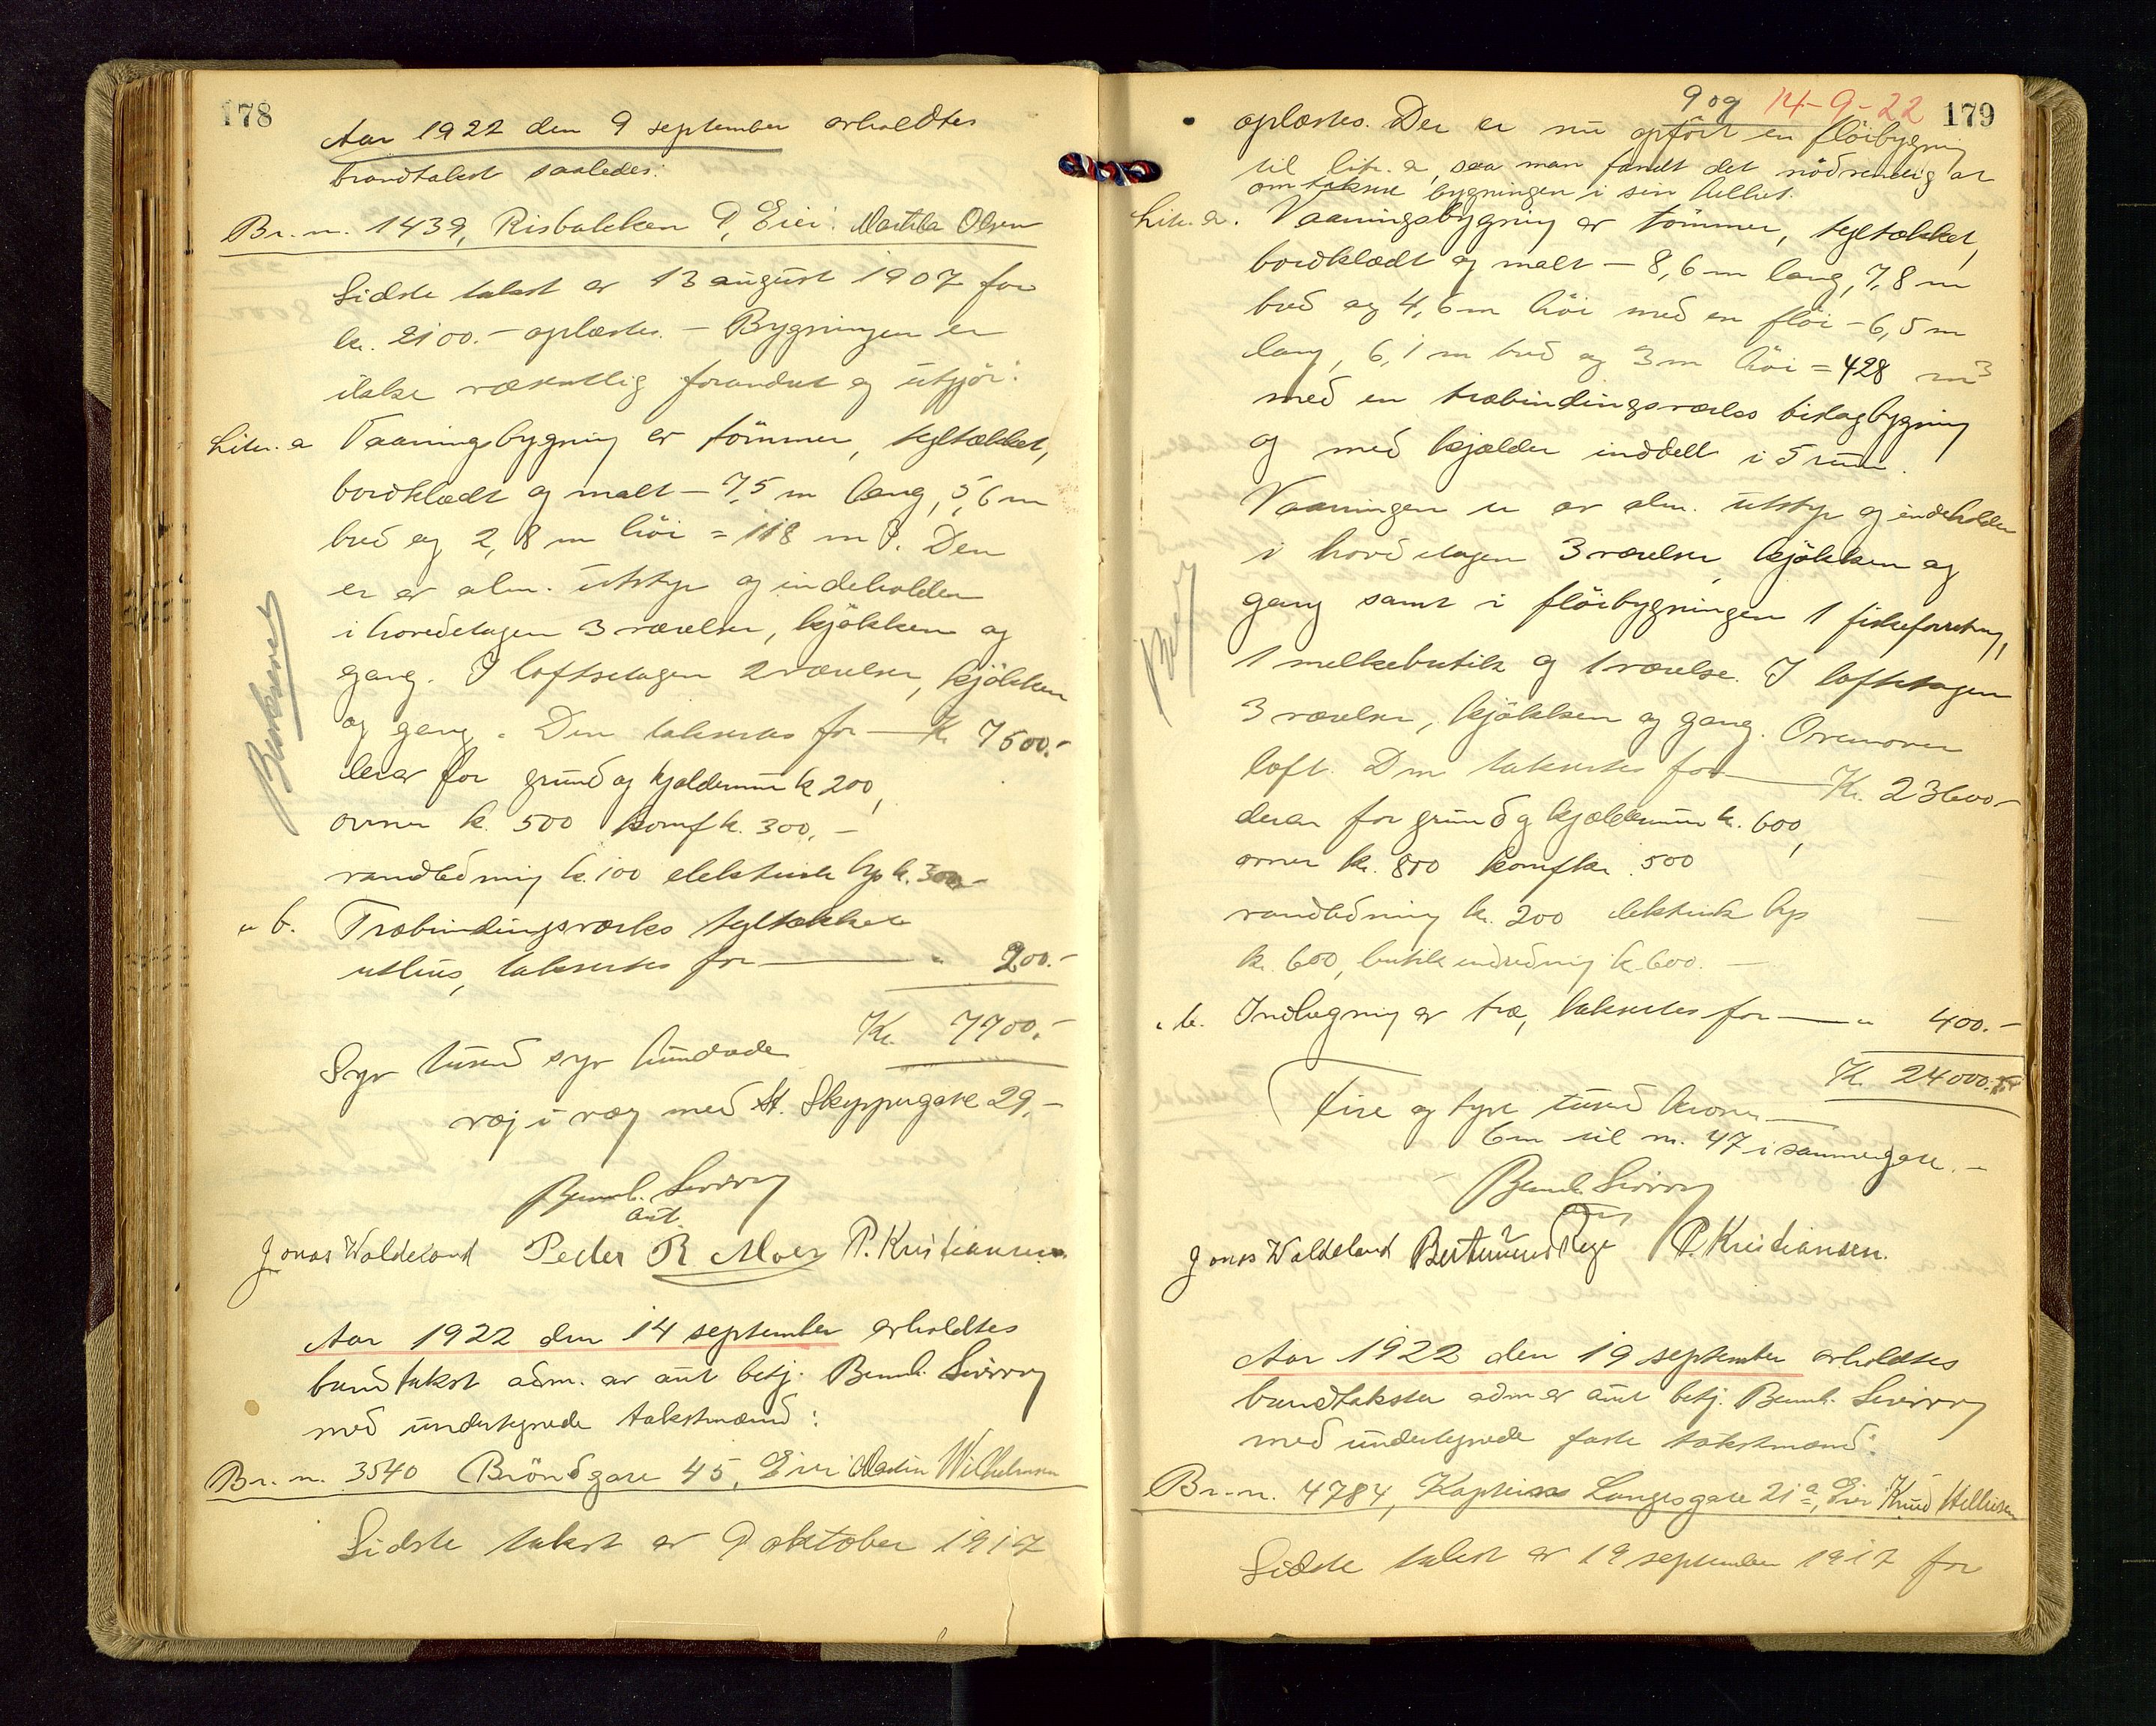 178
Aar 1922 den 9 september avholdtes
brandtakst saaledes:
Br. n. 1439, Risbakken 9, Eier: Martha Olsen
Sidste takst av 13 august 1907 for
kr. 2100.- oplæstes. - Bygningen er
ikke væsentlig forandret og utgjør:
Litr. a Vaaningsbygning av tömmer, tegltækket,
bordklædt og malt - 7,5 m lang, 5,6 m
bred og 2,8 m höi = 118 m³. Den
er av alm. utstyr og indeholder
i hovedetagen 3 værelser, kjökken og
gang. I loftsetagen 2 værelser, kjökken
og gang. Den taksertes for — Kr. 7500.-
derav for grund og kjeldermur kr 200,
ovner kr. 500 komf kr. 300,-
vandledning kr. 100 elektrisk lys kr. 300-
" b. Træbindingsverks tegltækket
uthus, taksertes for — " 200.-
Kr. 7700.-
Syv tusind syv hundrede
væg i væg med St. Skippergate 29.-
Bernh. Severin
aut.
Jonas Waldeland Peder R Moer P. Kristiansen
Aar 1922 den 14 september avholdtes
brandtakst adm. av aut betj. Bernh. Severin
med undertegnede takstmænd:
Br. n. 3540 Bröndgate 45, Eier Martin Wilhelmsen
Sidste takst av 9 oktober 1917
9 og 14-9-22 179
oplæstes. Der er nu opført en flöibygning
til litr. a, saa man fandt det nödvendig at
omtaksere bygningen i sin helhet.
Litr. a. Vaaningsbygning av tömmer, tegltækket,
bordklædt og malt - 8,6 m lang, 7,8 m
bred og 4,6 m höi med en flöi - 6,5 m
lang, 6,1 m bred og 3 m höi = 428 m³
med en træbindingsverks bislagbygning
og med kjælder inddelt i 5 rum.
Vaaningen er av alm. utstyr og indeholder
i hovedetagen 3 værelser, kjökken og
gang samt i flöibygningen 1 fiskeforretning,
1 melkebutik og 1 værelse. I loftetagen
3 værelser, kjökken og gang. Ovenover
loft. Den taksertes for — Kr. 23600-
derav for grund og kjældermur kr. 600,
ovner kr. 800 komf kr. 500
vandledning kr. 200 elektrisk lys
kr. 600, butikindredning kr 600. -
" b. Indhegning av træ, taksertes for — " 400.-
Kr. 24000.-
Fire og tyve tusind kroner —
6 m til nr. 47 i samme gate. -
Bernh. Severin
aut
Jonas Waldeland P. Kristiansen.
Aar 1922 den 19 september avholdtes
brandtakster adm av aut betj. Bernh. Severin
med undertegnede faste takstmænd:
Br. n. 4784, Kaptein Langesgate 21 a, Eier Knud Hellesen
Sidste takst av 19 september 1917 for